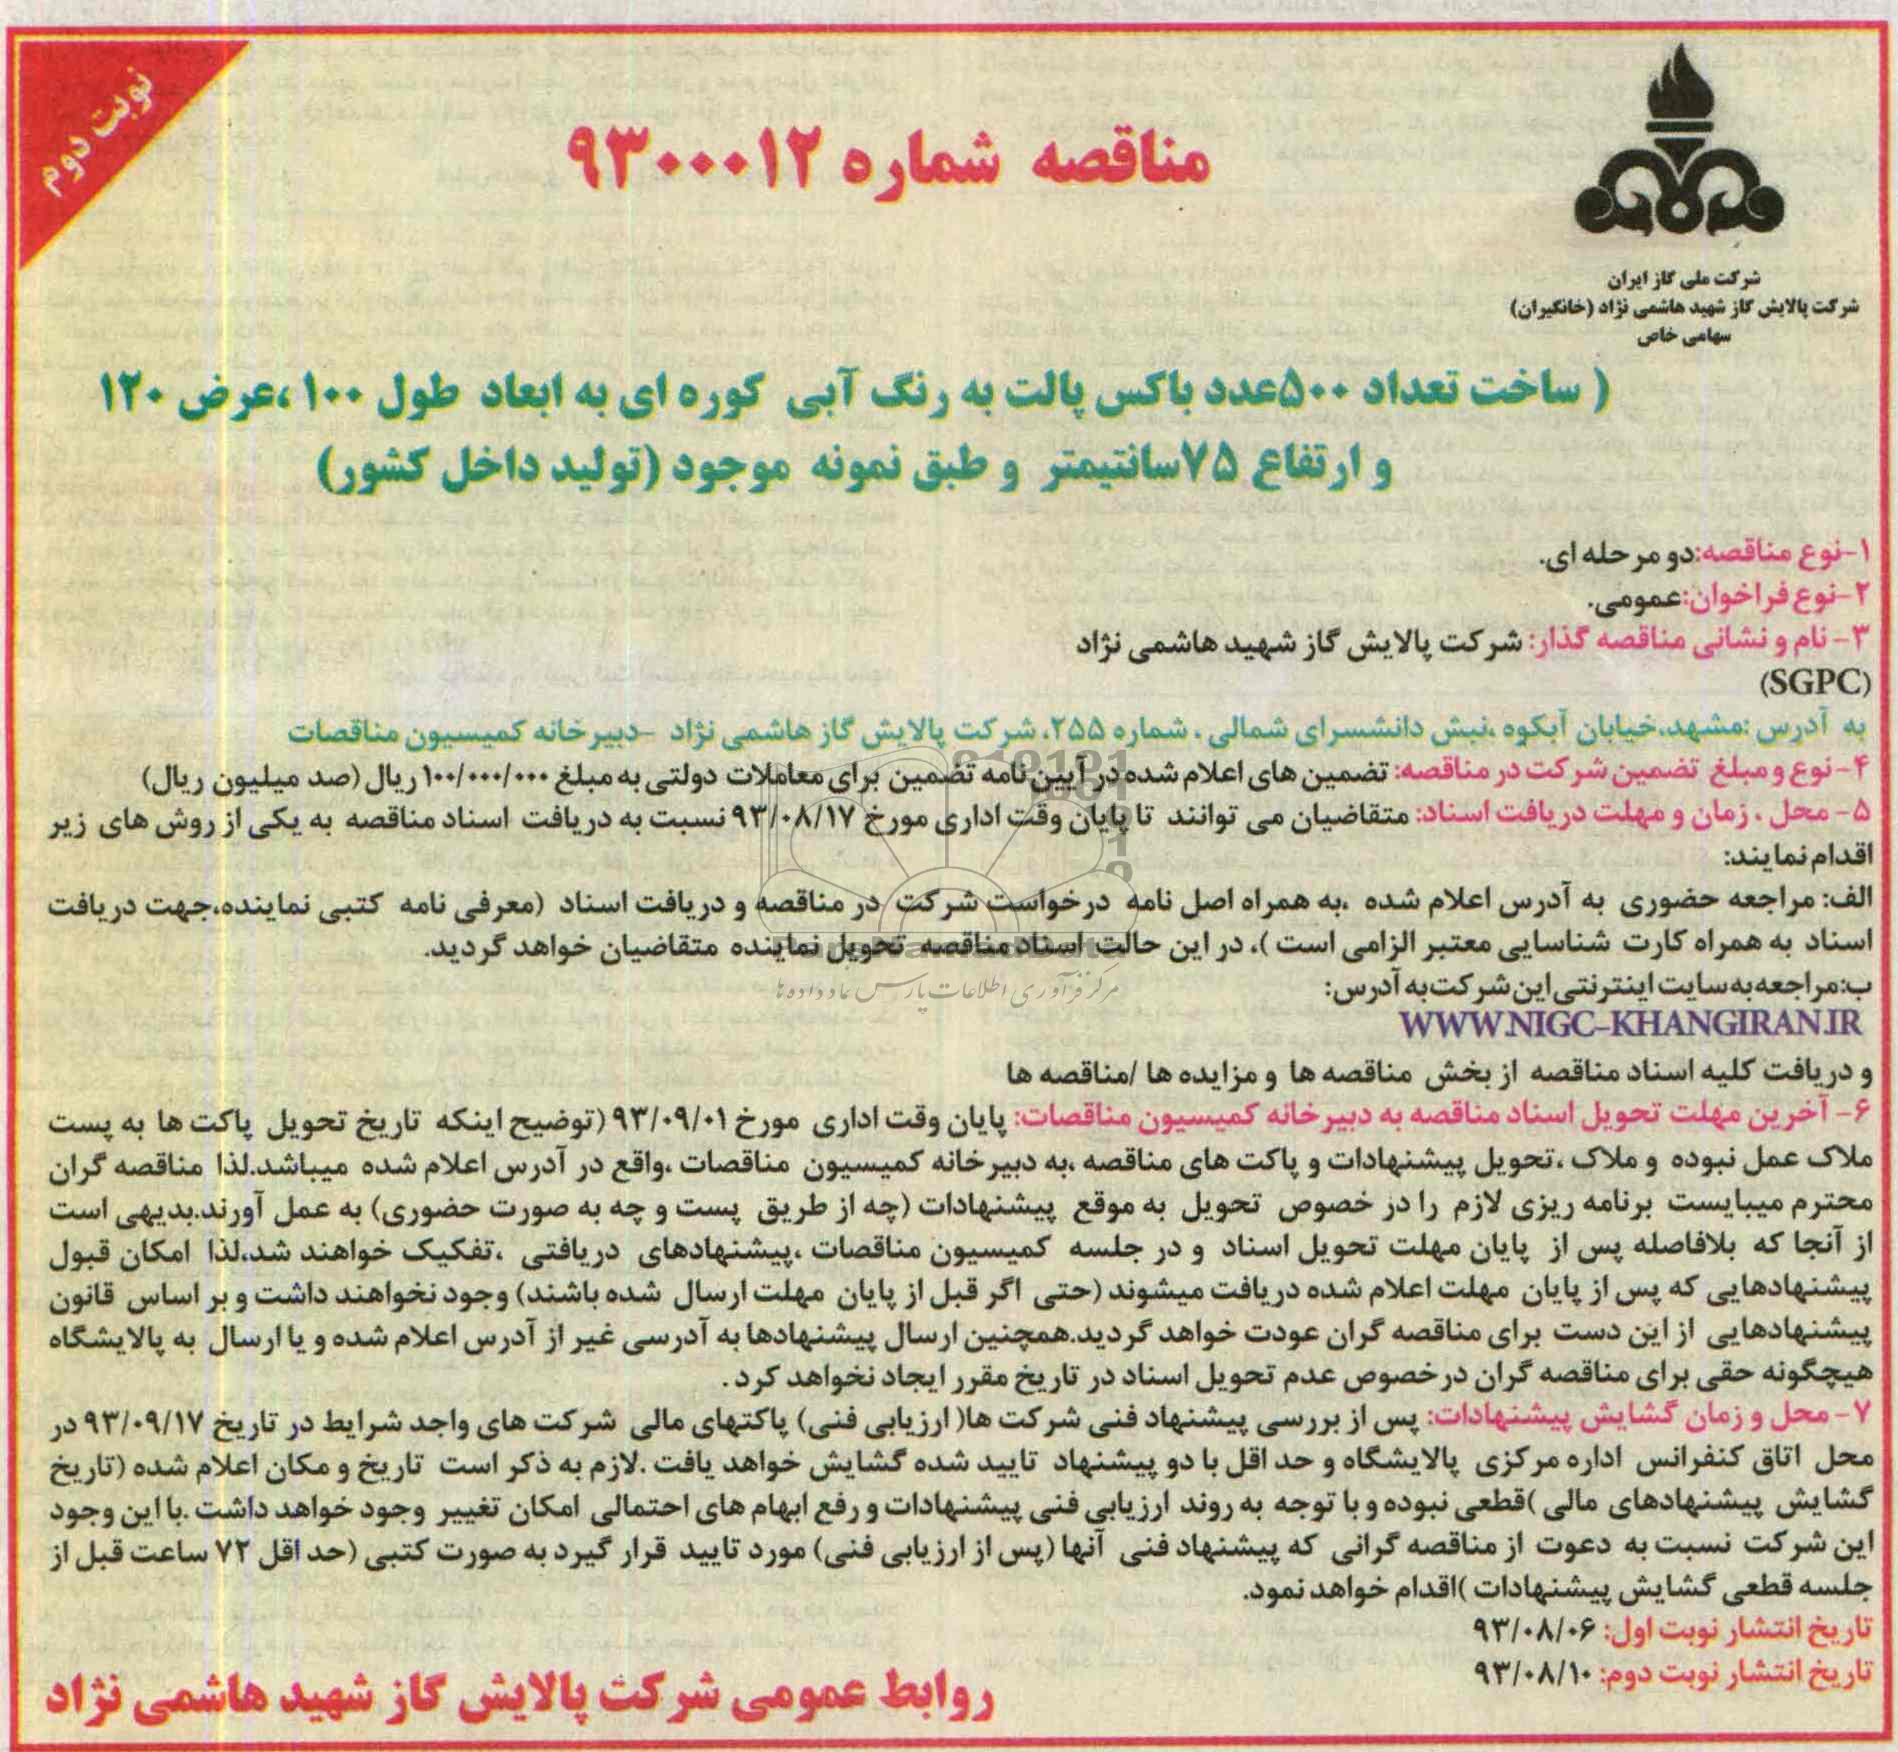 نوبت دوم
مناقصه شماره ۹۳۰۰۰۱۲
شرکت ملی گاز ایران
شرکت پالایش گاز شهید هاشمی نژاد (خانگیران)
سهامی خاص
( ساخت تعداد ۵۰۰عدد باکس پالت به رنگ آبی کوره ای به ابعاد طول ۱۰۰ ،عرض ۱۲۰
و ارتفاع ۷۵سانتیمتر و طبق نمونه موجود (تولید داخل کشور)
۱-نوع مناقصه:دو مرحله ای.
۲-نوع فراخوان:عمومی.
۳- نام و نشانی مناقصه گذار: شرکت پالایش گاز شهید هاشمی نژاد
(SGPC)
به آدرس :مشهد،خیابان آبکوه ،نبش دانشسرای شمالی ، شماره ۲۵۵، شرکت پالایش گاز هاشمی نژاد -دبیرخانه کمیسیون مناقصات
۴-نوع و مبلغ تضمین شرکت در مناقصه: تضمین های اعلام شده در آیین نامه تضمین برای معاملات دولتی به مبلغ ۱۰۰/۰۰۰/۰۰۰ ریال (صد میلیون ریال)
۵- محل ، زمان و مهلت دریافت اسناد: متقاضیان می توانند تا پایان وقت اداری مورخ ۹۳/۰۸/۱۷ نسبت به دریافت اسناد مناقصه به یکی از روش های زیر
اقدام نمایند:
الف: مراجعه حضوری به آدرس اعلام شده ،به همراه اصل نامه درخواست شرکت در مناقصه و دریافت اسناد (معرفی نامه کتبی نماینده،جهت دریافت
اسناد به همراه کارت شناسایی معتبر الزامی است )، در این حالت اسناد مناقصه تحویل نماینده متقاضیان خواهد گردید.
مرکز فرآوری اطلاعات پارس ماد داده ها
ب:مراجعه به سایت اینترنتی این شرکت به آدرس:
WWW.NIGC-KHANGIRAN.IR
و دریافت کلیه اسناد مناقصه از بخش مناقصه ها و مزایده ها /مناقصه ها
۶- آخرین مهلت تحویل اسناد مناقصه به دبیرخانه کمیسیون مناقصات: پایان وقت اداری مورخ ۹۳/۰۹/۰۱ (توضیح اینکه تاریخ تحویل پاکت ها به پست
ملاک عمل نبوده و ملاک ،تحویل پیشنهادات و پاکت های مناقصه ،به دبیرخانه کمیسیون مناقصات ،واقع در آدرس اعلام شده میباشد.لذا مناقصه گران
محترم میبایست برنامه ریزی لازم را در خصوص تحویل به موقع پیشنهادات (چه از طریق پست و چه به صورت حضوری) به عمل آورند.بدیهی است
از آنجا که بلافاصله پس از پایان مهلت تحویل اسناد و در جلسه کمیسیون مناقصات ،پیشنهادهای دریافتی ،تفکیک خواهند شد،لذا امکان قبول
پیشنهادهایی که پس از پایان مهلت اعلام شده دریافت میشوند (حتی اگر قبل از پایان مهلت ارسال شده باشند) وجود نخواهند داشت و بر اساس قانون
پیشنهادهایی از این دست برای مناقصه گران عودت خواهد گردید.همچنین ارسال پیشنهادها به آدرسی غیر از آدرس اعلام شده و یا ارسال به پالایشگاه
هیچگونه حقی برای مناقصه گران درخصوص عدم تحویل اسناد در تاریخ مقرر ایجاد نخواهد کرد .
۷- محل و زمان گشایش پیشنهادات: پس از بررسی پیشنهاد فنی شرکت ها( ارزیابی فنی) پاکتهای مالی شرکت های واجد شرایط در تاریخ ۹۳/۰۹/۱۷ در
محل اتاق کنفرانس اداره مرکزی پالایشگاه و حد اقل با دو پیشنهاد تایید شده گشایش خواهد یافت .لازم به ذکر است تاریخ و مکان اعلام شده (تاریخ
گشایش پیشنهادهای مالی )قطعی نبوده و با توجه به روند ارزیابی فنی پیشنهادات و رفع ابهام های احتمالی امکان تغییر وجود خواهد داشت .با این وجود
این شرکت نسبت به دعوت از مناقصه گرانی که پیشنهاد فنی آنها (پس از ارزیابی فنی) مورد تایید قرار گیرد به صورت کتبی (حد اقل ۷۲ ساعت قبل از
جلسه قطعی گشایش پیشنهادات )اقدام خواهد نمود.
تاریخ انتشار نوبت اول: ۹۳/۰۸/۰۶
تاریخ انتشار نوبت دوم: ۹۳/۰۸/۱۰
روابط عمومی شرکت پالایش گاز شهید هاشمی نژاد